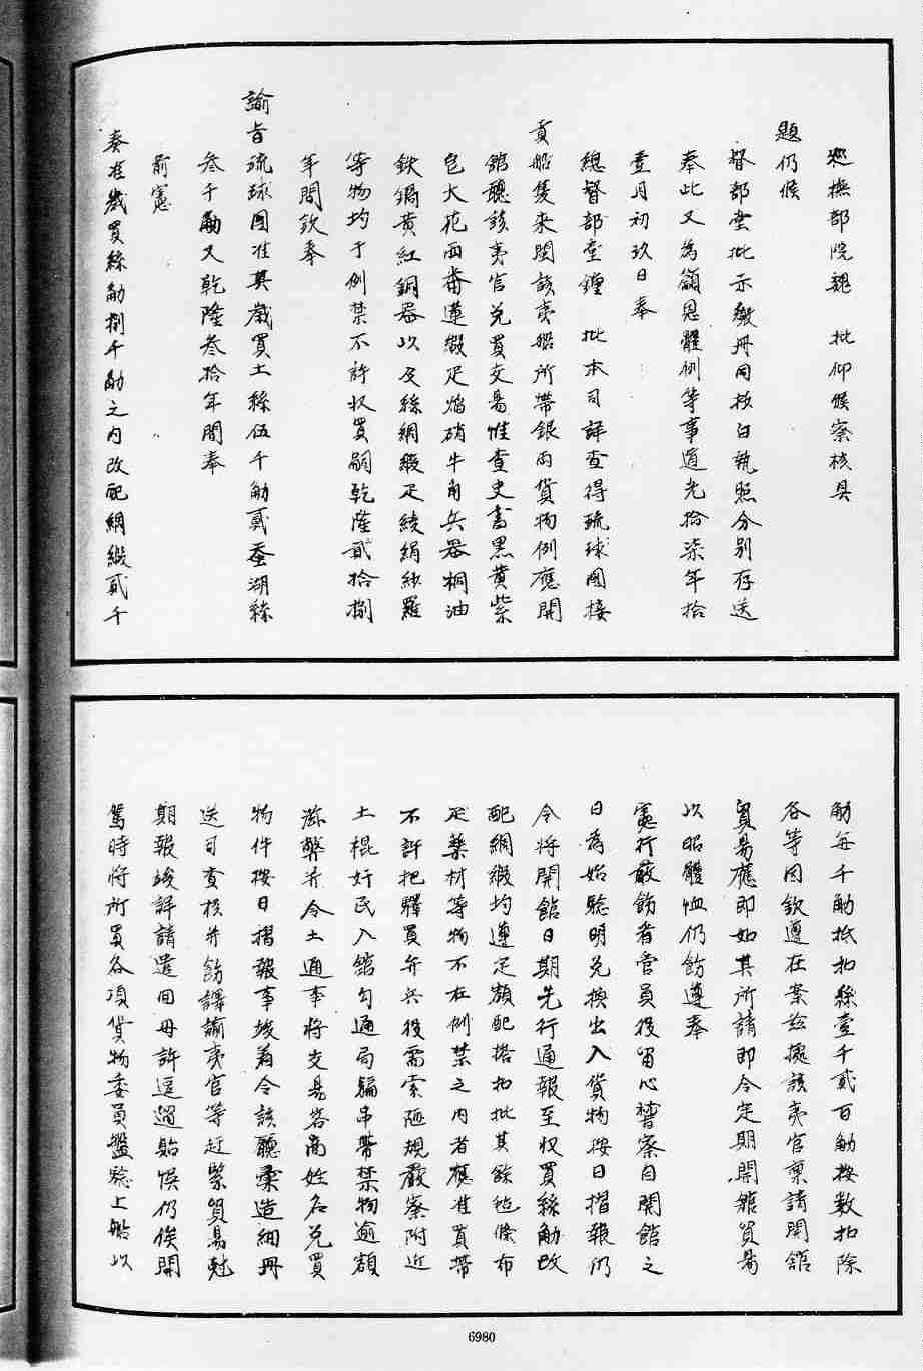 巡撫部院魏　批仰候察核具
題仍候
督部堂批示繳冊同按白執照分別存送
奉此又為籲恩體例等事道光拾柒年拾
壹月初玖日奉
總督部堂鍾　批本司詳查得琉球國接
貢船隻來閩該夷船所帶銀兩貨物例應開
舘聽該夷官兌買交易惟查史書黑黃紫
皂大花西番蓮緞疋焰硝牛角兵器桐油
鉄鍋黃紅銅器以及絲綢緞疋綾絹紗羅
等物均于例禁不許收買嗣乾隆貳拾捌
年間欽奉
諭旨琉球國准其歲買土絲伍千觔貳蚕湖絲
叁千觔又乾隆叁拾年間奉
前憲
奏准歲買絲觔捌千觔之内改配綢緞貳千
觔每千觔抵扣絲壹千貳百觔按數扣除
各等因欽遵在案玆據該夷官稟請開舘
貿易應即如其所請即令定期開舘貿易
以昭體恤仍飭遵奉
憲行嚴飭者管員役留心稽察自開舘之
日為始聽明兌換出入貨物按日摺報仍
令將開舘日期先行通報至收買絲觔改
配綢緞均遵定額配搭扣批其餘毡條布
疋藥材等物不在例禁之内者應准買帶
不許把驛員弁兵役需索陋規嚴察附近
土棍奸民入舘勾通局騙串帶禁物逾額
滋弊并令土通事將交易客商姓名兌買
物件按日摺報事竣着令該聽彙造細冊
送司查核并飭譯諭夷官等赶緊貿易尅
期報竣詳請遣回毋許逗遛貽悞仍俟開
駕時將所買各項貨物委員盤驗上船以
6980